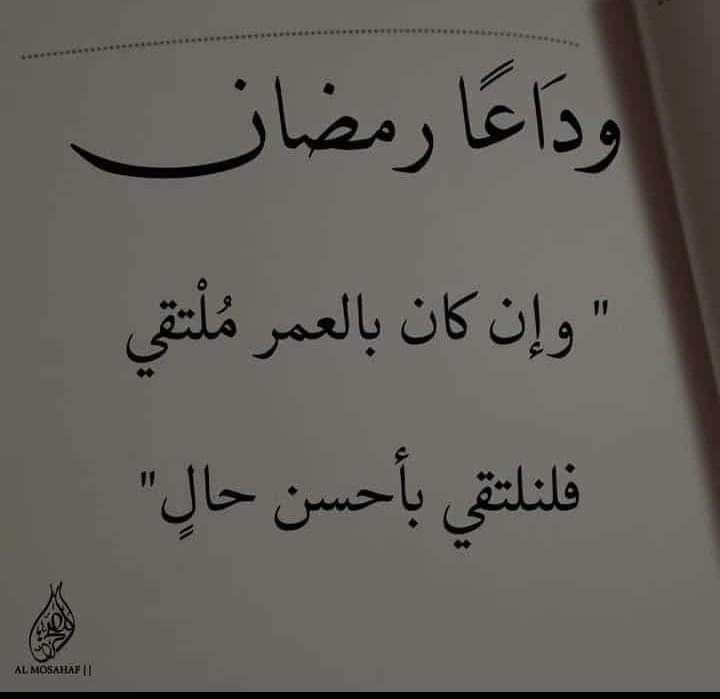 ودَاعًا رمضان
" وإن كان بالعمر مُلْتقي
فلنلتقي بأحسن حالٍ"
AL MOSAHAF ||